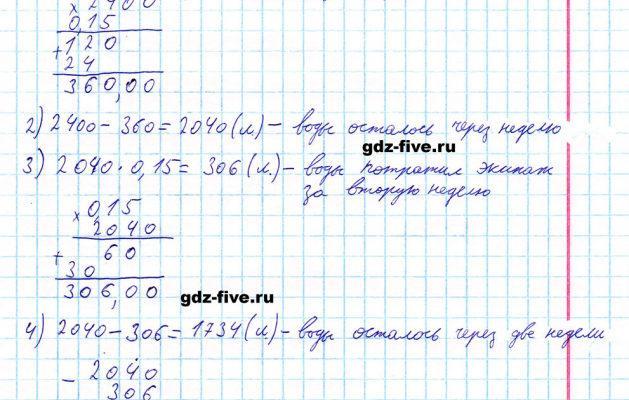 × 2400
0,15
+ 120
24
360,00
2) 2400 - 360 = 2040 (л) - воды осталось через неделю
gdz-five.ru
3) 2040 · 0,15 = 306 (л.) - воды потратил экипаж
за вторую неделю
× 0,15
2040
+ 60
30
306,00
gdz-five.ru
4) 2040 - 306 = 1734 (л.) - воды осталось через две недели
- 2040
306